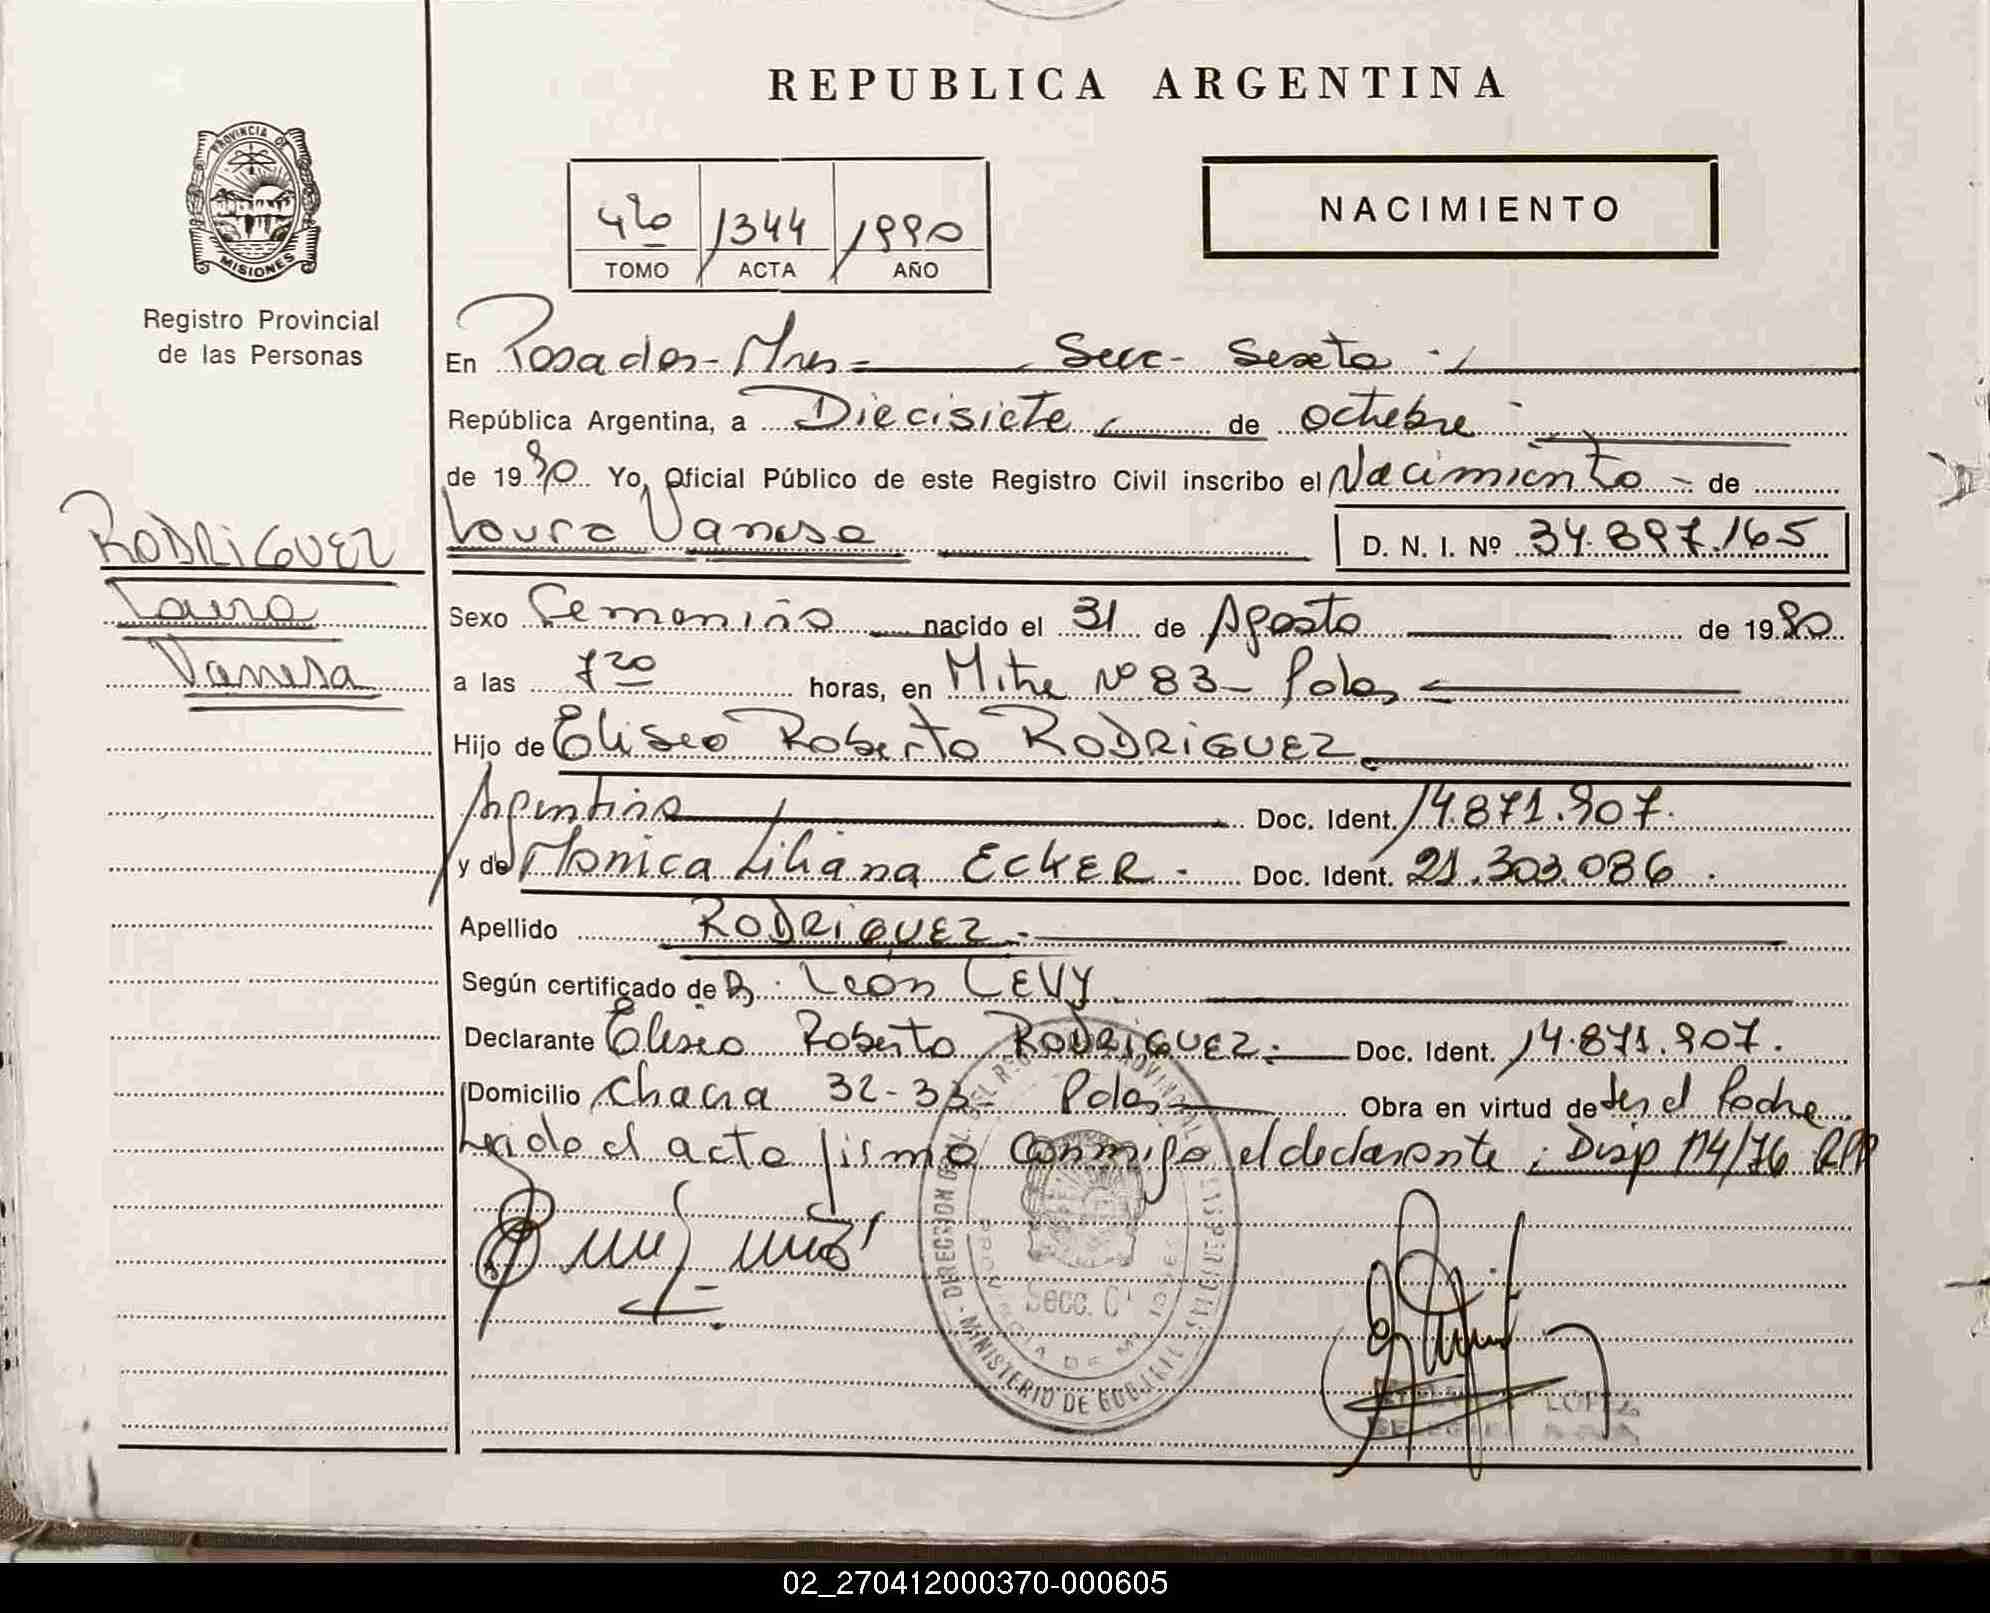 REPUBLICA ARGENTINA
PROVINCIA DE
MISIONES
Registro Provincial
de las Personas
4to 1344 1990
TOMO ACTA AÑO
NACIMIENTO
En Posadas - Mnes - Secc - Sexta
República Argentina, a Diecisiete de octubre
de 1990. Yo, Oficial Público de este Registro Civil inscribo el Nacimiento - de
RODRIGUEZ
Laura
Vanesa
Laura Vanesa D. N. I. Nº 34.897.165
Sexo Femenino nacido el 31 de Agosto de 1990
a las 7 20 horas, en Mitre Nº 83 - Pdas
Hijo de Eliseo Roberto RODRIGUEZ
Argentina Doc. Ident. 14.871.907.
y de Monica Liliana ECKER - Doc. Ident. 21.303.086.
Apellido RODRIGUEZ.-
Según certificado de Dr. León LEVY
Declarante Eliseo Roberto RODRIGUEZ.- Doc. Ident. 14.871.907.
Domicilio Chacra 32-33 - Pdas Obra en virtud de ser el Padre
Leido el acta firma conmigo el declarante ; Disp 114/76 RPP
MINISTERIO DE GOBIERNO
Secc. 6ª
LOPEZ
02_270412000370-000605